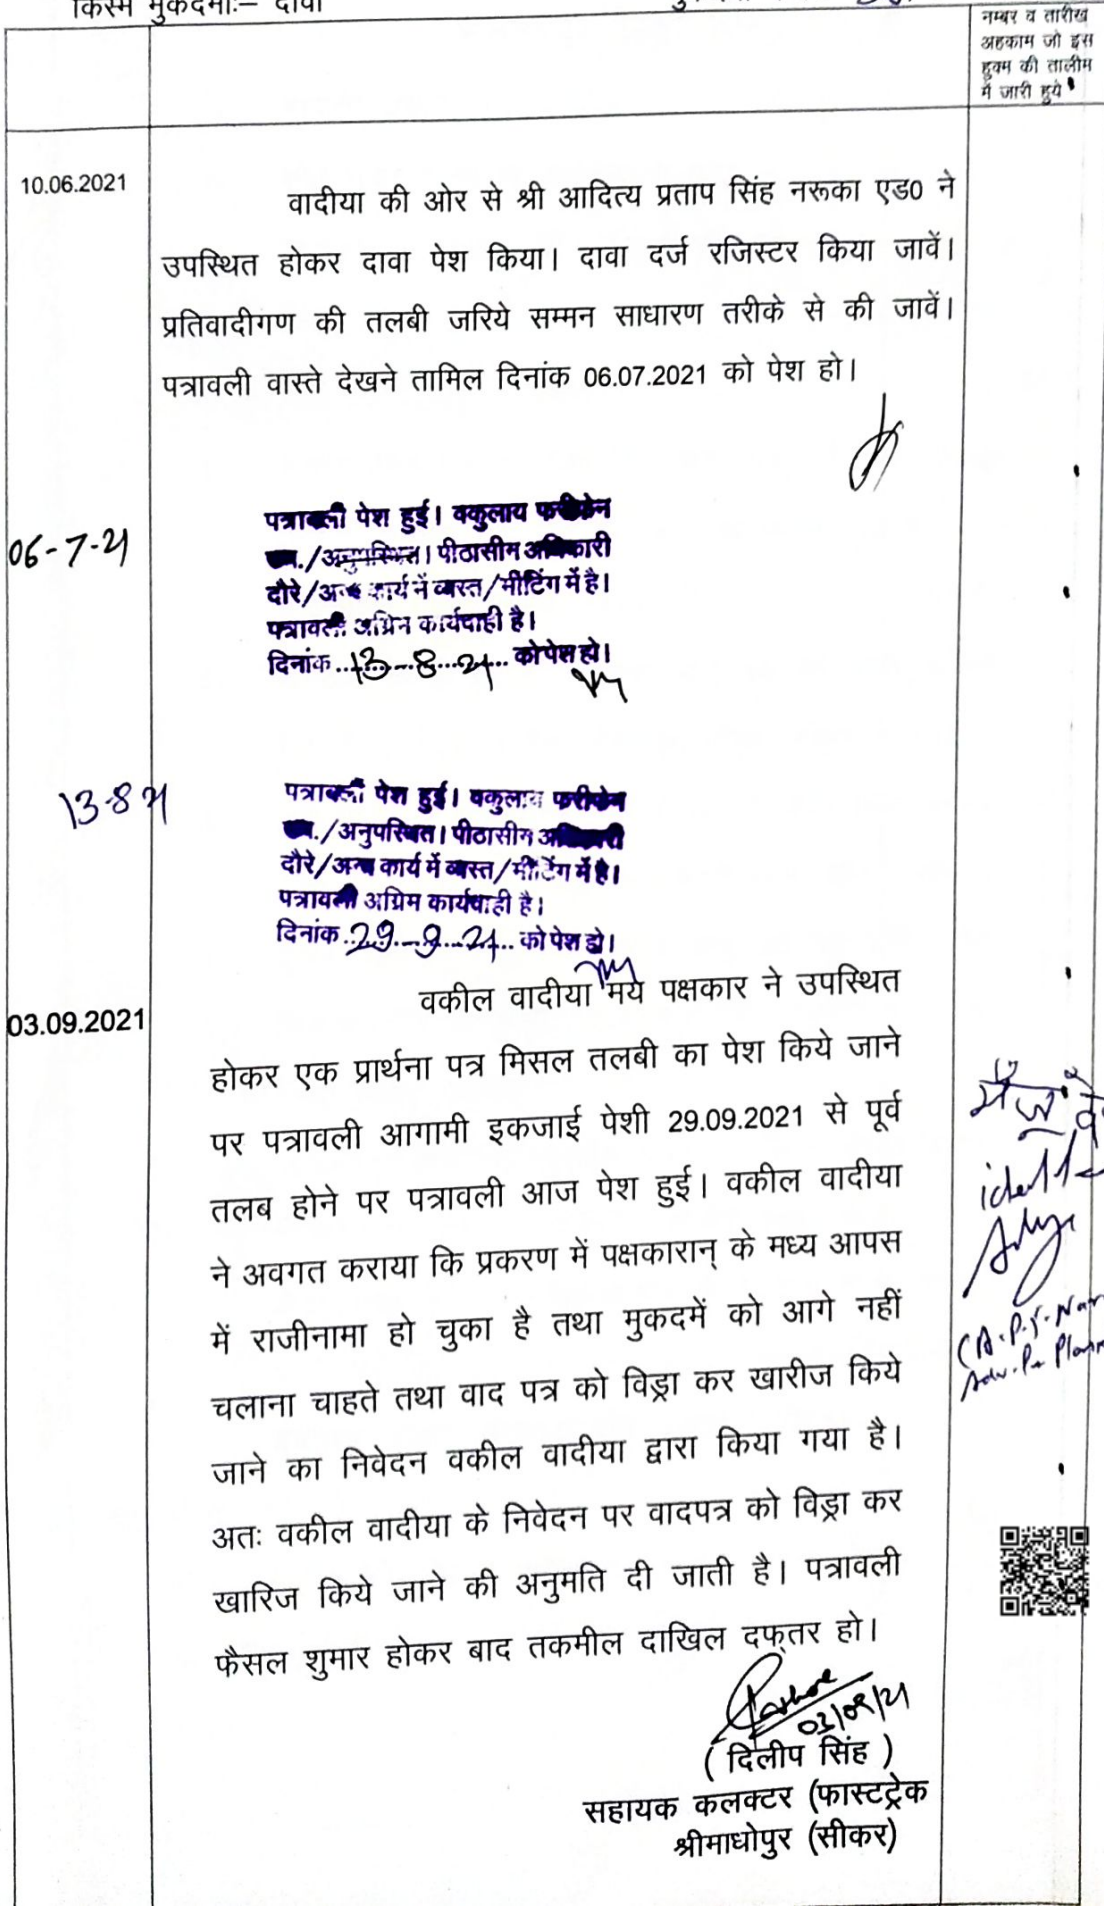 किस्म मुकदमाः– दावा
नम्बर व तारीख
अहकाम जो इस
हुक्म की तालीम
में जारी हुये
10.06.2021
वादीया की ओर से श्री आदित्य प्रताप सिंह नरूका एड0 ने
उपस्थित होकर दावा पेश किया। दावा दर्ज रजिस्टर किया जावें।
प्रतिवादीगण की तलबी जरिये सम्मन साधारण तरीके से की जावें।
पत्रावली वास्ते देखने तामिल दिनांक 06.07.2021 को पेश हो।
06-7-21
पत्रावली पेश हुई। वकुलाय फरीकेन
/अनुपस्थित। पीठासीम अधिकारी
दौरे/अन्य कार्य में व्यस्त/मीटिंग में है।
पत्रावली अग्रिम कार्यवाही है।
दिनांक 13-8-21 को पेश हो।
13-8-21
पत्रावली पेश हुई। वकुलाय फरीकेन
/अनुपस्थित। पीठासीन अधिकारी
दौरे/अन्य कार्य में व्यस्त/मीटिंग में है।
पत्रावली अग्रिम कार्यवाही है।
दिनांक 29-9-21 को पेश हो।
03.09.2021
वकील वादीया मय पक्षकार ने उपस्थित
होकर एक प्रार्थना पत्र मिसल तलबी का पेश किये जाने
पर पत्रावली आगामी इकजाई पेशी 29.09.2021 से पूर्व
तलब होने पर पत्रावली आज पेश हुई। वकील वादीया
ने अवगत कराया कि प्रकरण में पक्षकारान् के मध्य आपस
में राजीनामा हो चुका है तथा मुकदमें को आगे नहीं
चलाना चाहते तथा वाद पत्र को विड्रा कर खारीज किये
जाने का निवेदन वकील वादीया द्वारा किया गया है।
अतः वकील वादीया के निवेदन पर वादपत्र को विड्रा कर
खारिज किये जाने की अनुमति दी जाती है। पत्रावली
फैसल शुमार होकर बाद तकमील दाखिल दफ्तर हो।
03/09/21
( दिलीप सिंह )
सहायक कलक्टर (फास्टट्रेक
श्रीमाधोपुर (सीकर)